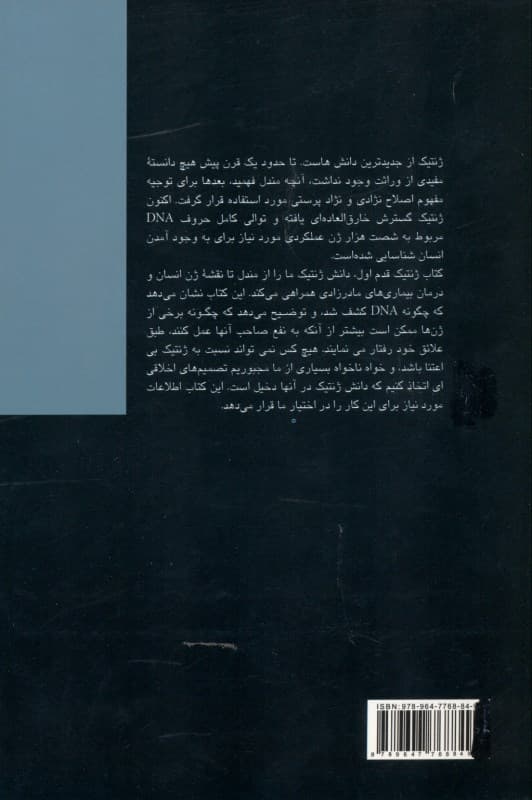 ژنتیک از جدیدترین دانش هاست. تا حدود یک قرن پیش هیچ دانستهٔ
مفیدی از وراثت وجود نداشت، آنچه مندل فهمید، بعدها برای توجیه
مفهوم اصلاح نژادی و نژاد پرستی مورد استفاده قرار گرفت. اکنون
ژنتیک گسترش خارق‌العاده‌ای یافته و توالی کامل حروف DNA
مربوط به شصت هزار ژن عملکردی مورد نیاز برای به وجود آمدن
انسان شناسایی شده‌است.
کتاب ژنتیک قدم اول، دانش ژنتیک ما را از مندل تا نقشهٔ ژن انسان و
درمان بیماری‌های مادرزادی همراهی می‌کند. این کتاب نشان می‌دهد
که چگونه DNA کشف شد، و توضیح می‌دهد که چگونه برخی از
ژن‌ها ممکن است بیشتر از آنکه به نفع صاحب آنها عمل کنند، طبق
علائق خود رفتار می نمایند. هیچ کس نمی تواند نسبت به ژنتیک بی
اعتنا باشد، و خواه ناخواه بسیاری از ما مجبوریم تصمیم‌های اخلاقی
ای اتخاذ کنیم که دانش ژنتیک در آنها دخیل است. این کتاب اطلاعات
مورد نیاز برای این کار را در اختیار ما قرار می‌دهد.
ISBN: 978-964-7768-84-
9 789647 76884